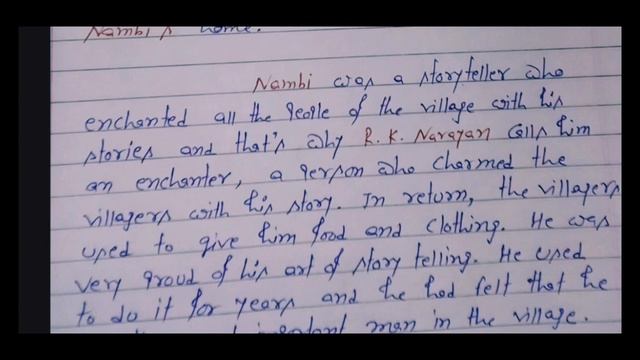 Nambi's home.
Nambi was a storyteller who
enchanted all the people of the village with his
stories and that's why R. K. Narayan calls him
an enchanter, a person who charmed the
villagers with his story. In return, the villagers
used to give him food and clothing. He was
very proud of his art of story telling. He used
to do it for years and he had felt that he
man in the village.